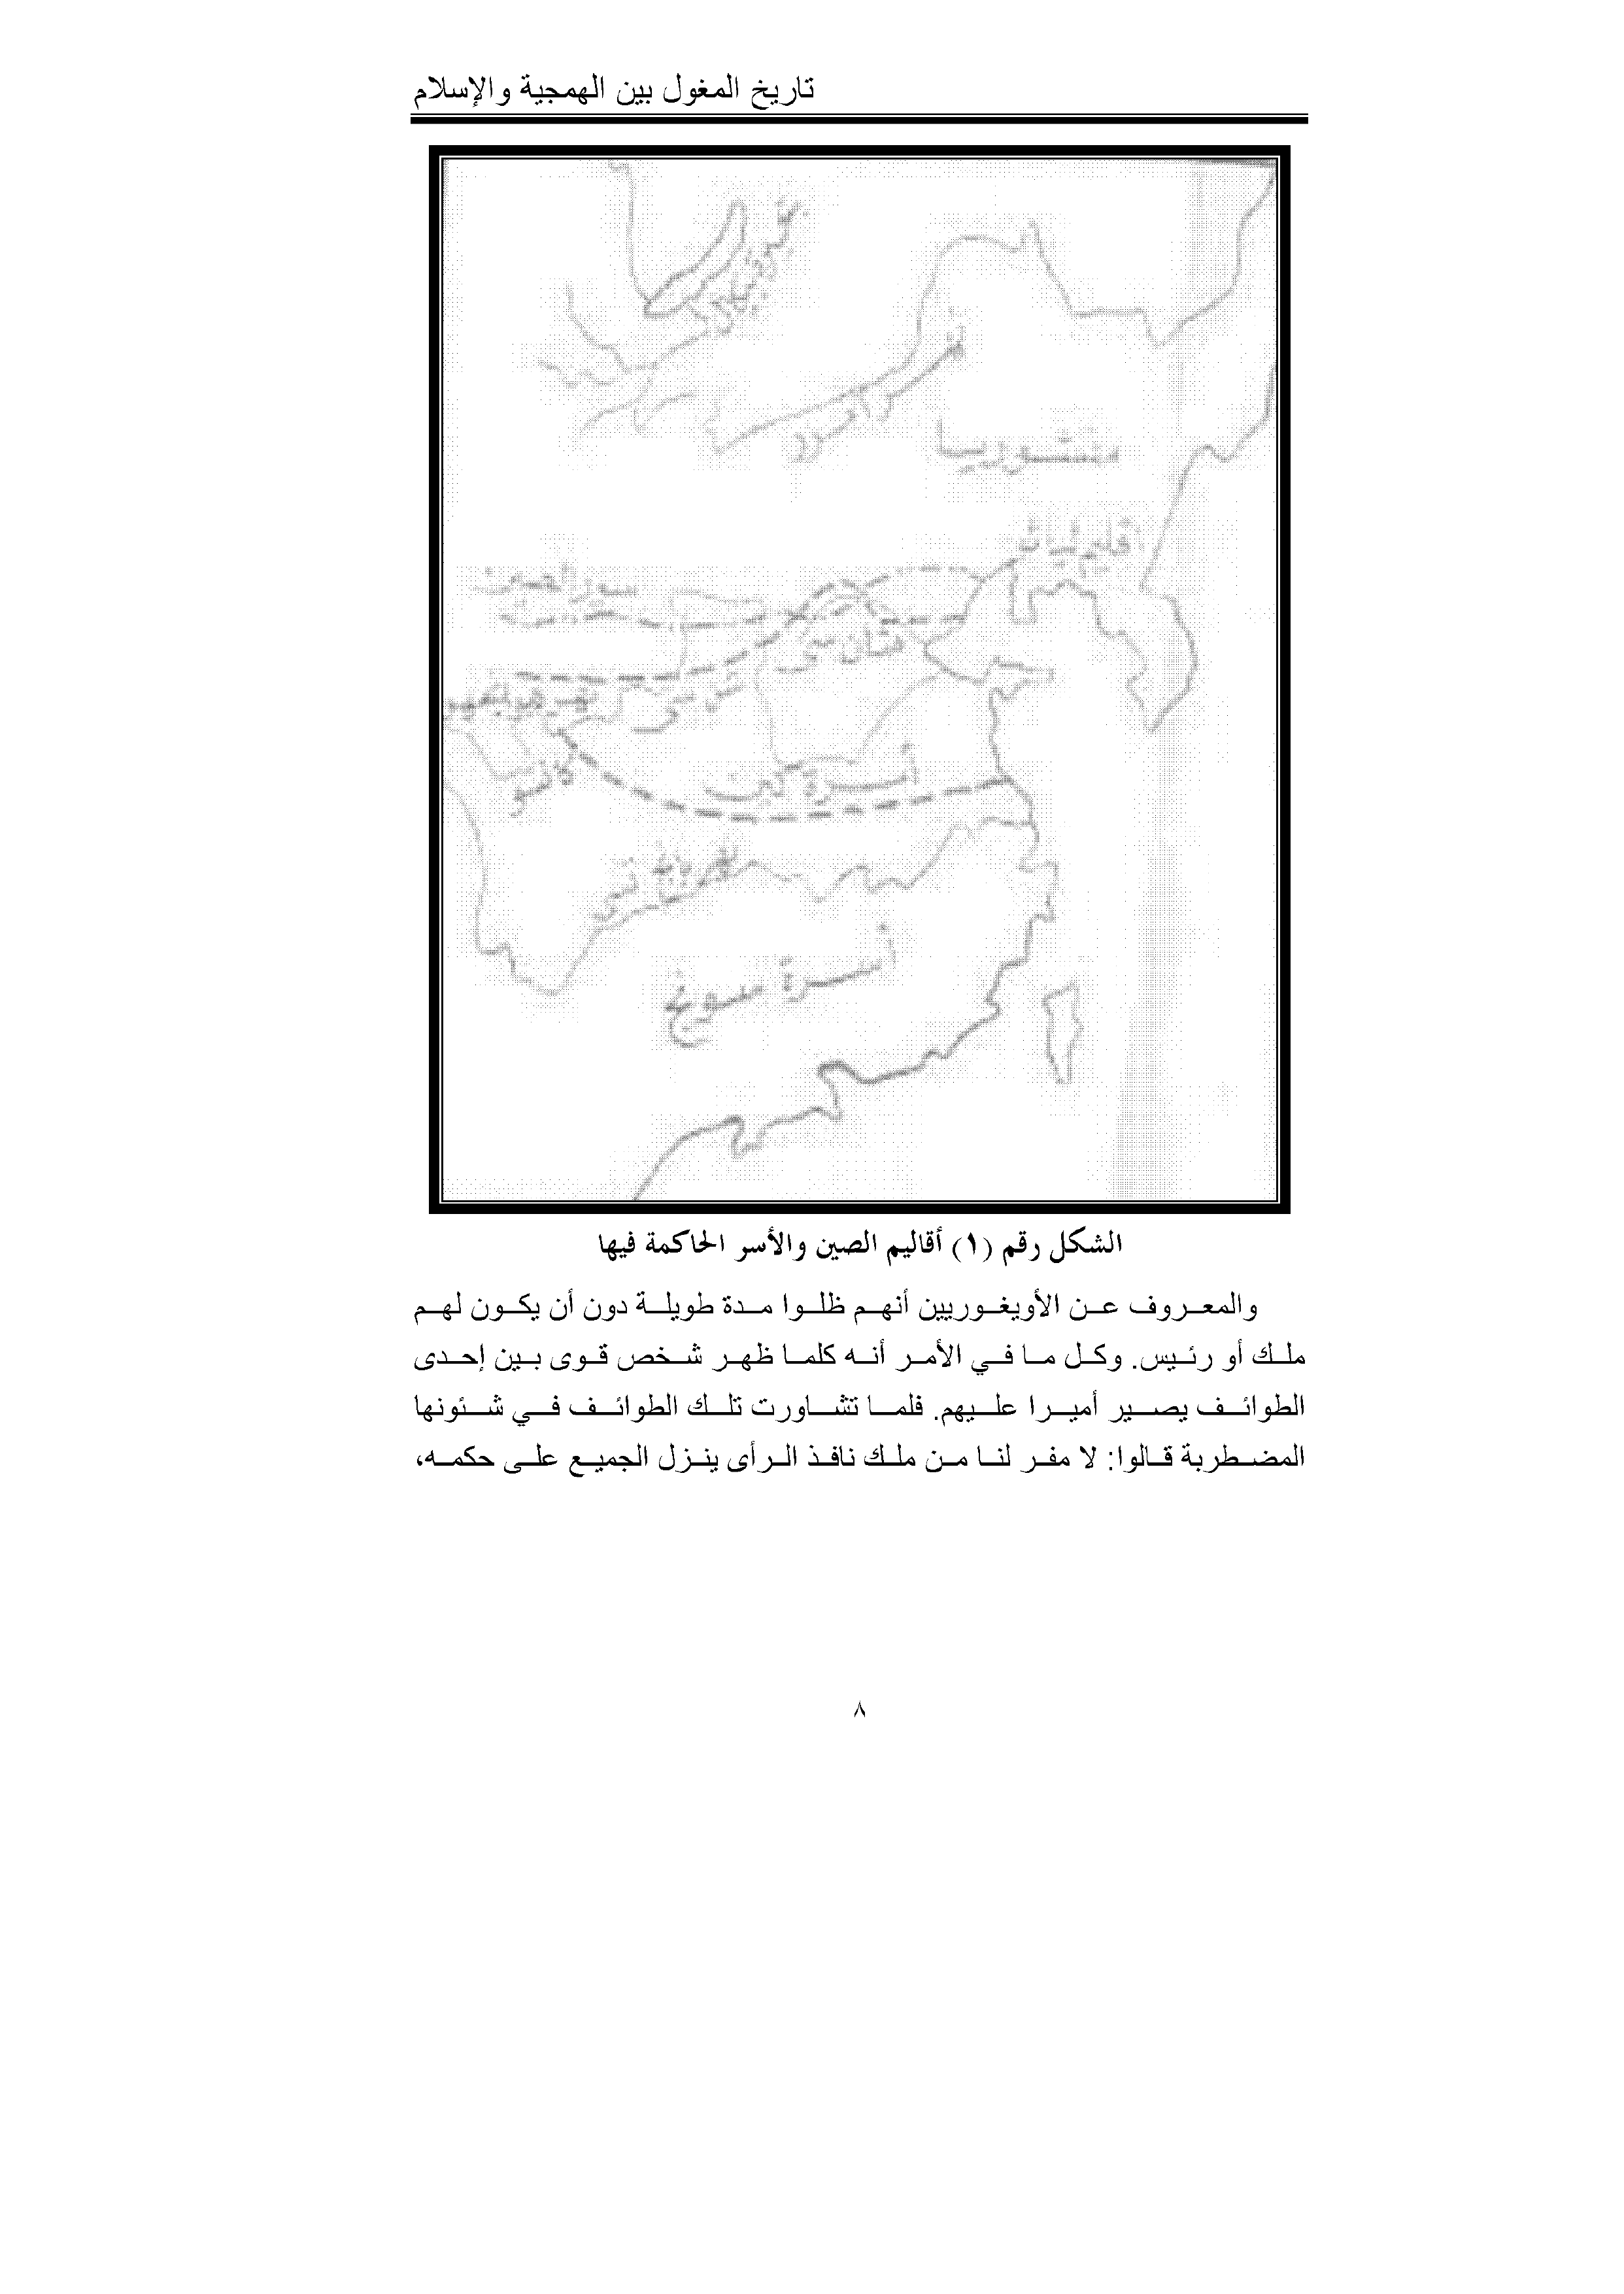 تاريخ المغول بين الهمجية والإسلام
منشوريا
سور الصين
أسرة كين
أسرة سونج
الشكل رقم (١) أقاليم الصين والأسر الحاكمة فيها
والمعروف عن الأويغوريين أنهم ظلوا مدة طويلة دون أن يكون لهم
ملك أو رئيس. وكل ما في الأمر أنه كلما ظهر شخص قوى بين إحدى
الطوائف يصير أميرا عليهم. فلما تشاورت تلك الطوائف في شئونها
المضطربة قالوا: لا مفر لنا من ملك نافذ الرأى ينزل الجميع على حكمه،
٨